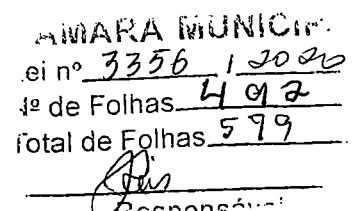 AMARA MUNICIP.
ei nº 3356 / 2020
Nº de Folhas 492
Total de Folhas 599
Responsável